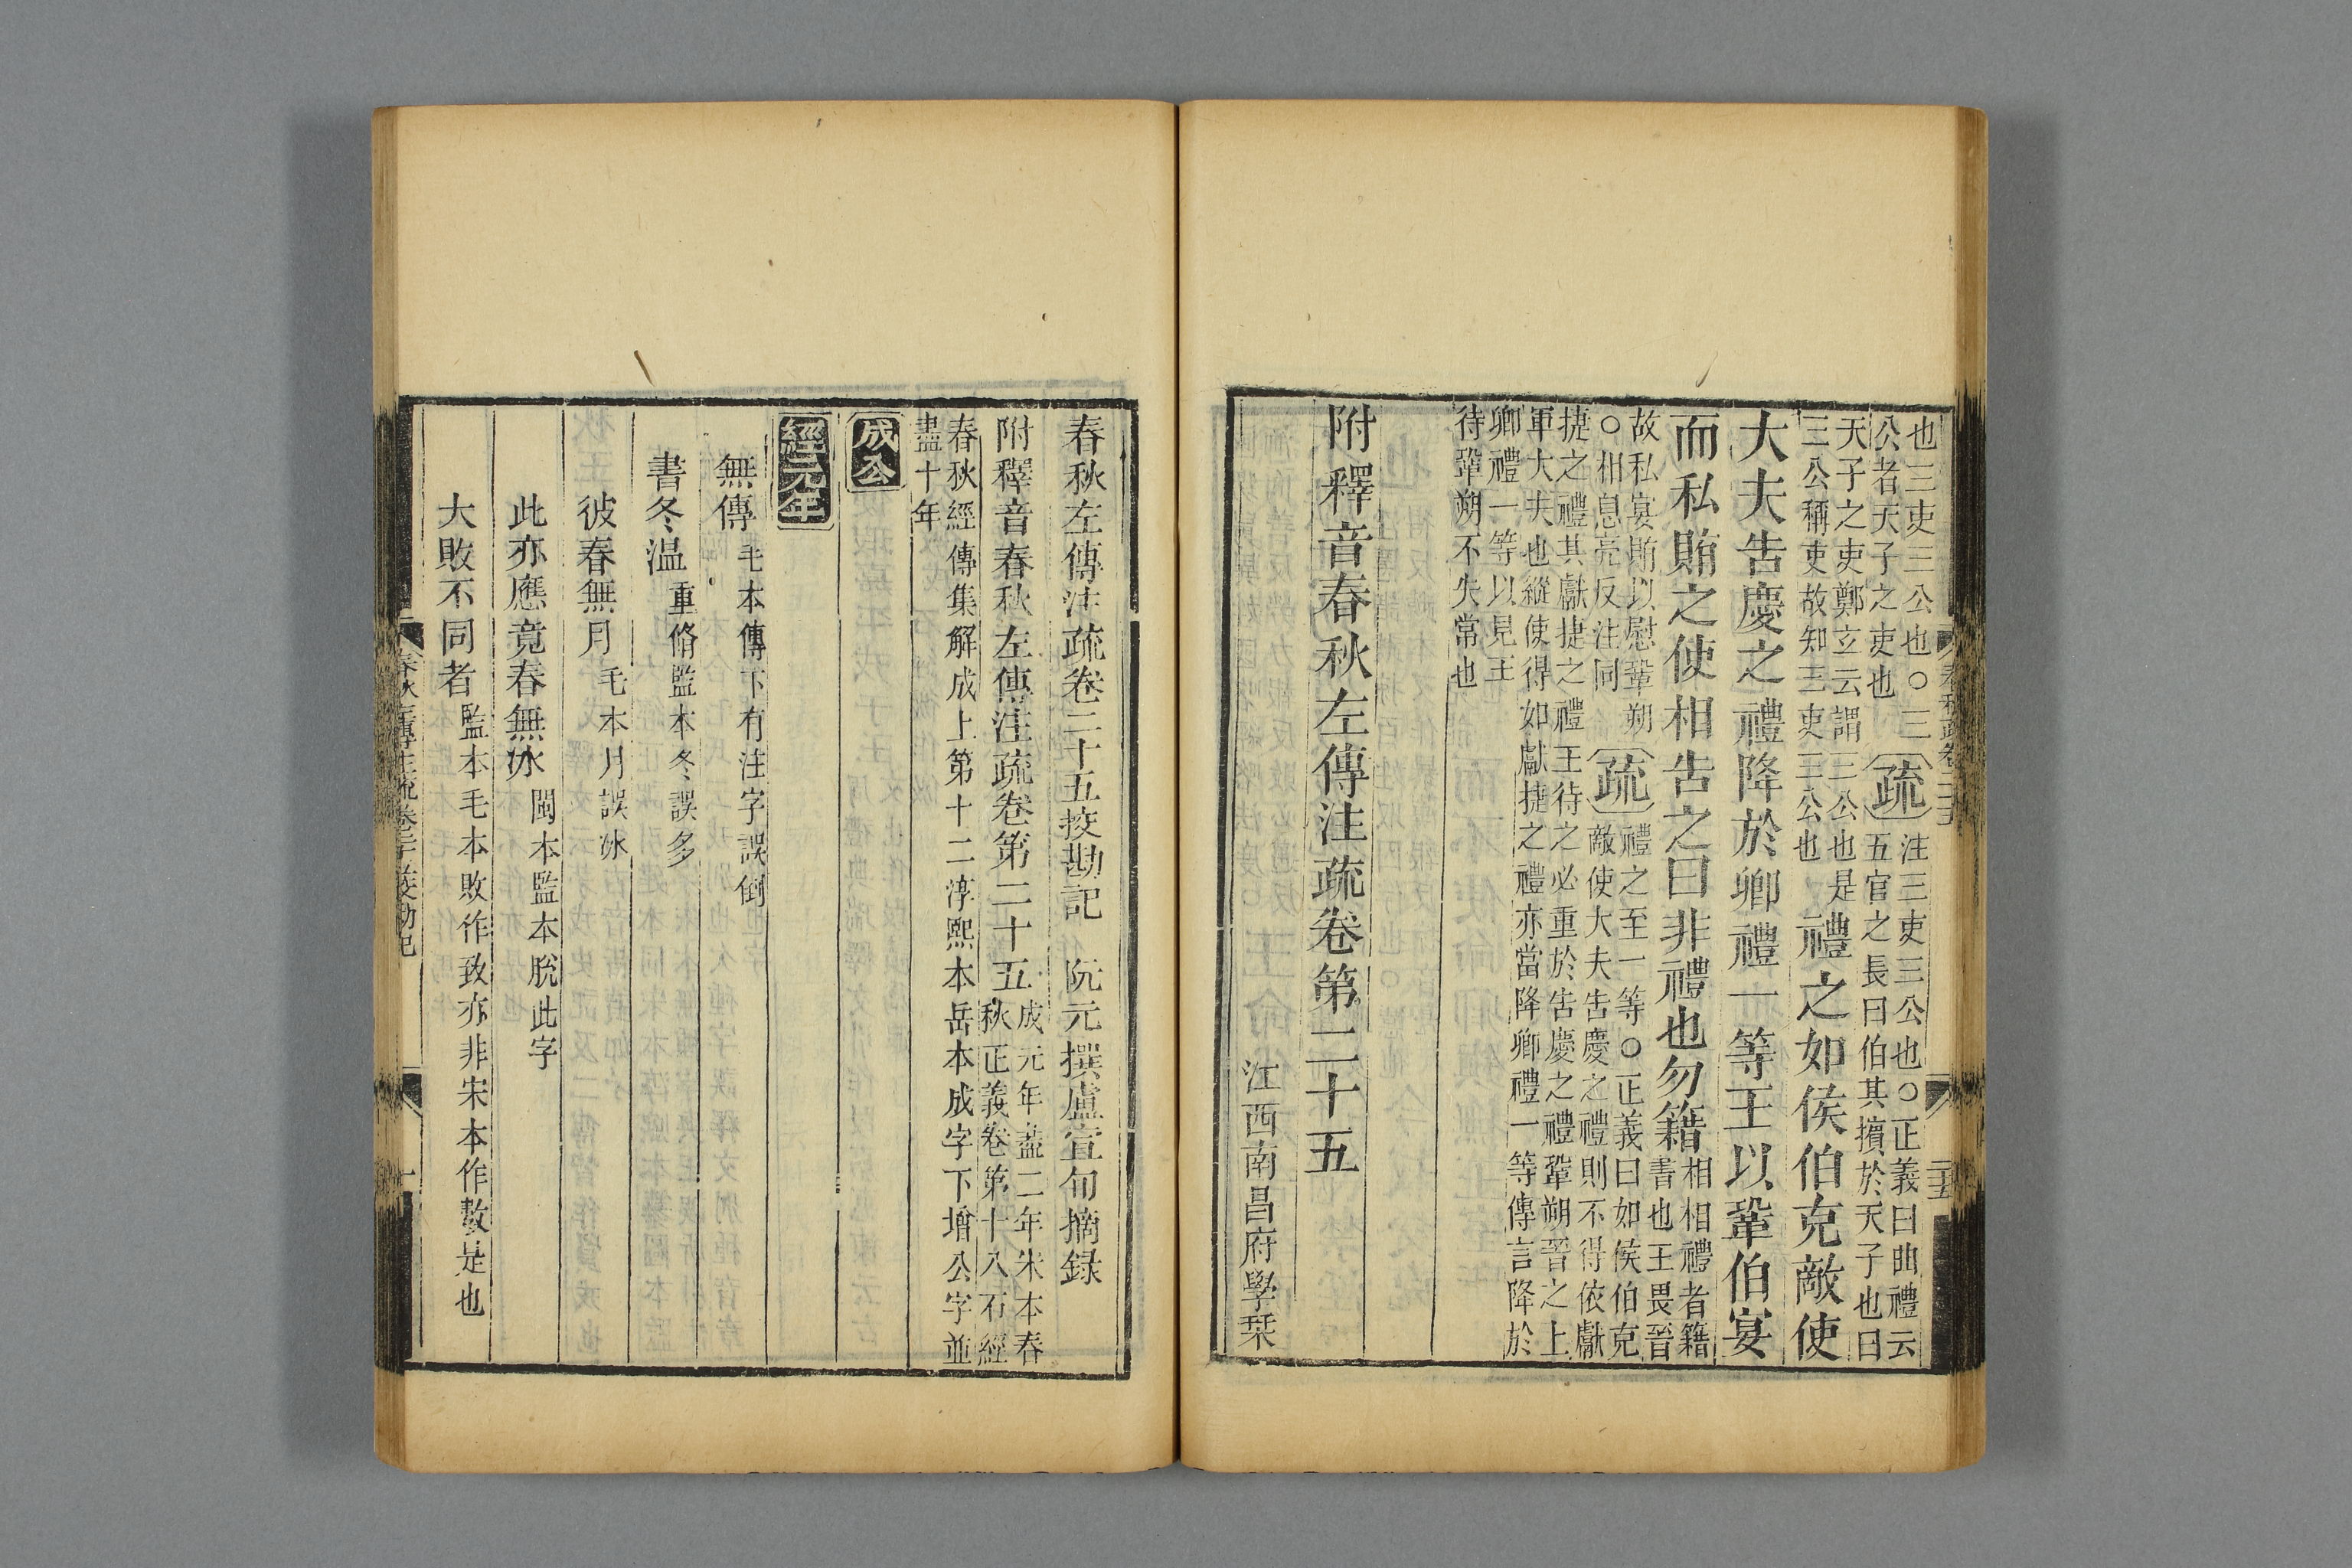 也三吏三公也○三
公者天子之吏也
疏
注三吏三公也○正義曰曲禮云
五官之長曰伯其擯於天子也曰
天子之吏鄭玄云謂三公也是
三公稱吏故知三吏三公也
禮之如侯伯克敵使
大夫告慶之禮降於卿禮一等王以鞏伯宴
而私賄之使相告之曰非禮也勿籍
相相禮者籍
書也王畏晉
故私宴賄以慰鞏朔
○相息亮反注同
疏
禮之至一等○正義曰如侯伯克
敵使大夫告慶之禮則不得依獻
捷之禮其獻捷之禮王待之必重於告慶之禮鞏朔晉之上
軍大夫也縱使得如獻捷之禮亦當降卿禮一等傳言降於
卿禮一等以見王
待鞏朔不失常也
附釋音春秋左傳注疏卷第二十五
江西南昌府學栞
春秋疏卷二十五
二十五
春秋左傳注疏卷二十五挍勘記 阮元撰盧宣旬摘録
附釋音春秋左傳注疏卷第二十五
成元年盡二年宋本春
秋正義卷第十八石經
春秋經傳集解成上第十二淳熙本岳本成字下增公字並
盡十年
成公
經元年
無傳 毛本傳下有注字誤倒
書冬温 重脩監本冬誤多
彼春無月 毛本月誤冰
此亦應竟春無冰 閩本監本脫此字
大敗不同者 監本毛本敗作致亦非宋本作數是也
春秋左傳注疏卷二十五挍勘記
一